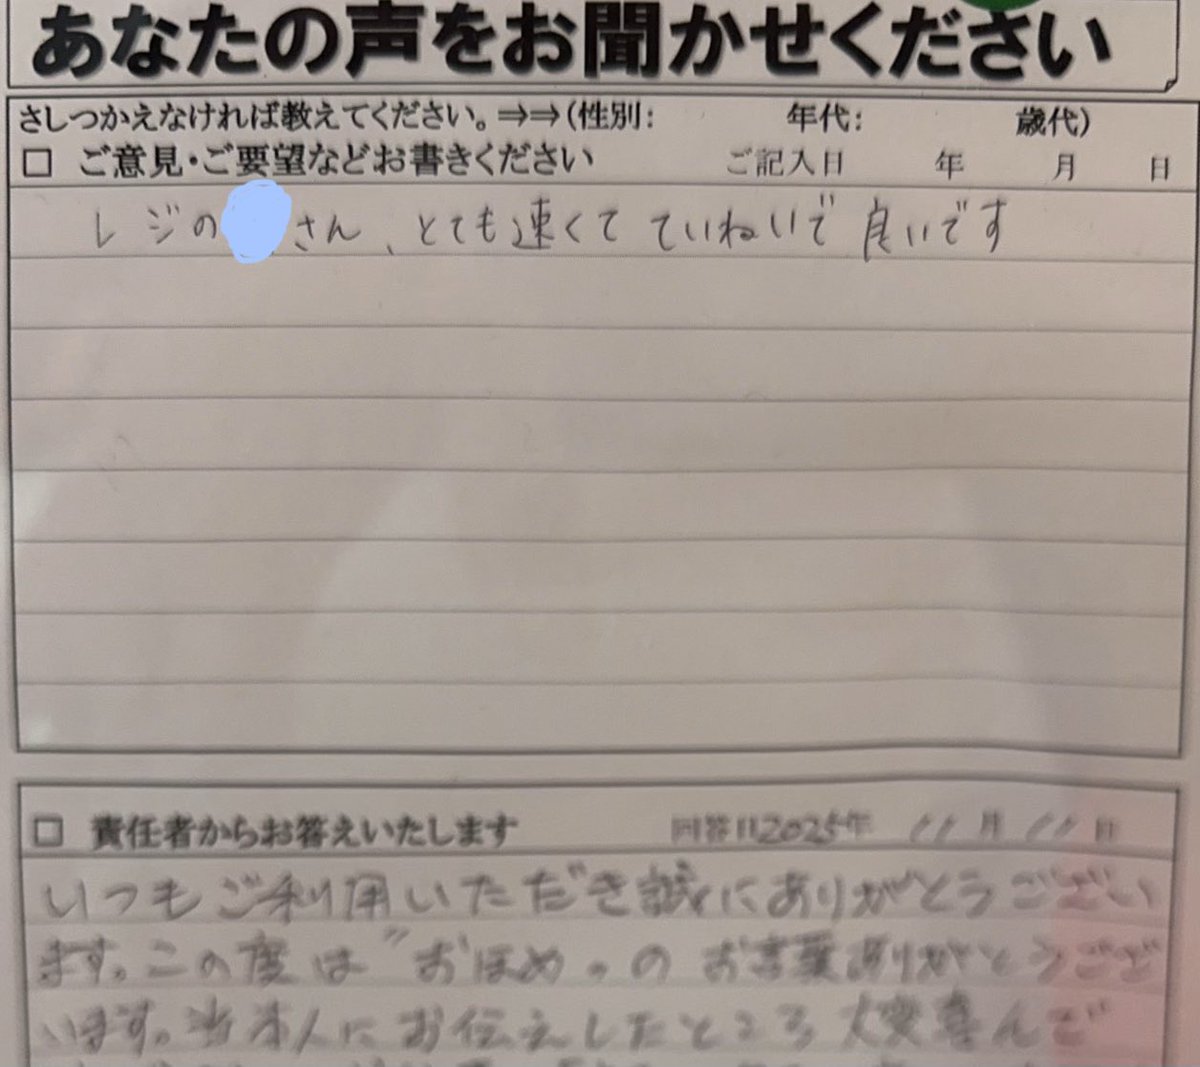 あなたの声をお聞かせください
さしつかえなければ教えてください。⇒⇒(性別: 年代: 歳代)
□ ご意見・ご要望などお書きください ご記入日 年 月 日
レジの さん、とても速くて ていねいで 良いです
□ 責任者からお答えいたします 回答日2025年 11月11日
いつもご利用いただき誠にありがとうござい
ます。この度は"おほめ"の お言葉ありがとうござ
います。当本人にお伝えしたところ 大変喜んで